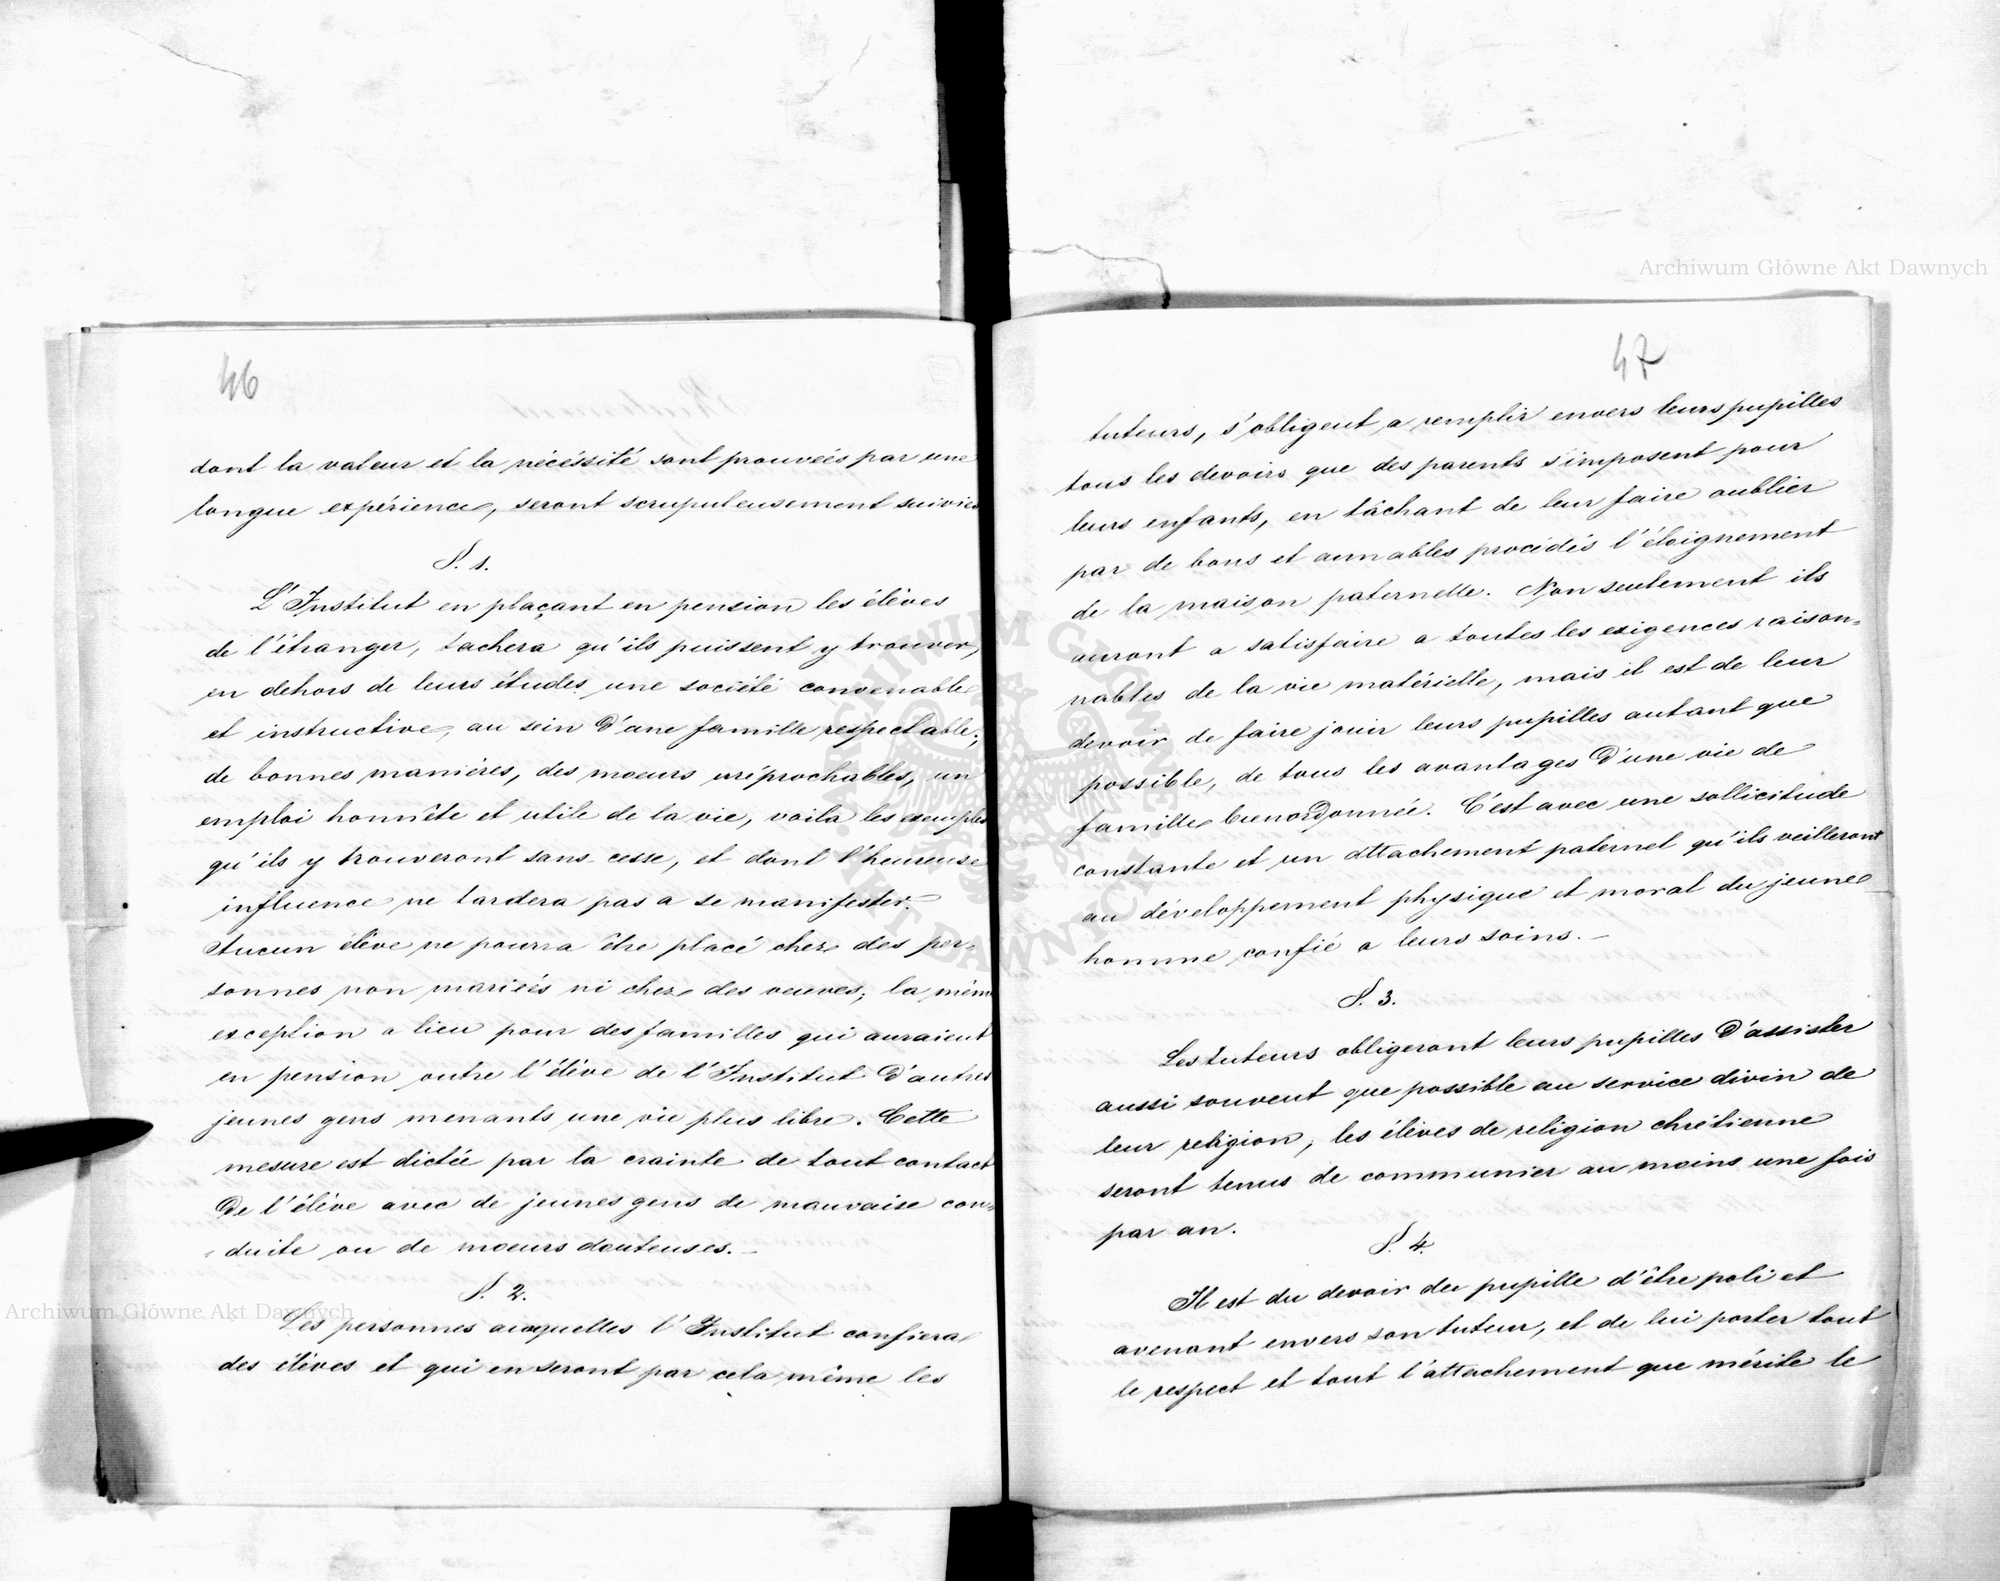 46
dont la valeur et la nécéssité sont prouveés par une
longue expérience, seront scrupuleusement suivies
§. 1.
L'Institut en plaçant en pension les élèves
de l'étranger, tachera qu'ils puissent y trouver,
en dehors de leurs études, une société convenable
et instructive, au sein d'une famille respectable;
de bonnes manières, des moeurs irréprochables, un
emploi honnête et utile de la vie, voila les exemples
qu'ils y trouveront sans cesse, et dont l'heureuse
influence ne tardera pas a se manifester.
Aucun élève ne pourra être placé chez des per-
sonnes non mariées ni chez des veuves; la même
exception a lieu pour des familles qui auraient
en pension outre l'élève de l'Institut d'autres
jeunes gens menants une vie plus libre. Cette
mesure est dictée par la crainte de tout contact
de l'élève avec de jeunes gens de mauvaise con-
duite ou de moeurs douteuses. —
§. 2.
Les personnes auxquelles l'Institut confiera
des élèves et qui en seront par cela même les
47
tuteurs, s'obligent a remplir envers leurs pupilles
tous les devoirs que des parents s'imposent pour
leurs enfants, en tâchant de leur faire oublier
par de bons et aimables procédés l'éloignement
de la maison paternelle. Non seulement ils
auront a satisfaire a toutes les exigences raison-
nables de la vie matérielle, mais il est de leur
devoir de faire jouir leurs pupilles autant que
possible, de tous les avantages d'une vie de
famille bien ordonnée. C'est avec une sollicitude
constante et un attachement paternel qu'ils veilleront
au développement physique et moral du jeune
homme confié a leurs soins. —
§. 3.
Les tuteurs obligeront leurs pupilles d'assister
aussi souvent que possible au service divin de
leur religion; les élèves de religion chrétienne
seront tenus de communier au moins une fois
par an.
§. 4.
Il est du devoir du pupille d'être poli et
avenant envers son tuteur, et de lui porter tout
le respect et tout l'attachement que mérite le
Archiwum Główne Akt Dawnych
Archiwum Główne Akt Dawnych
ARCHIWUM GŁÓWNE AKT DAWNYCH